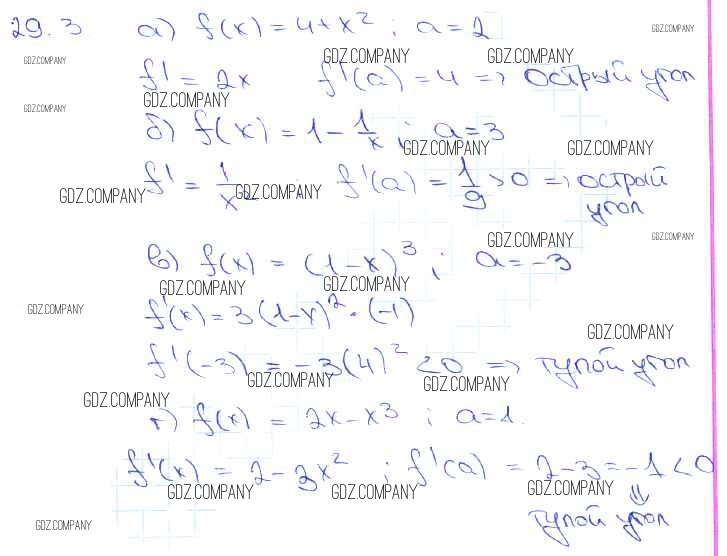 29.3. а) f(x) = 4+x² ; a=2
GDZ.COMPANY
GDZ.COMPANY GDZ.COMPANY
f' = 2x f'(a) = 4 => острый угол
GDZ.COMPANY
GDZ.COMPANY
б) f(x) = 1 - 1/x ; a=3
GDZ.COMPANY GDZ.COMPANY
f' = 1/x² ; f'(a) = 1/9 > 0 => острый
GDZ.COMPANY GDZ.COMPANY
угол
GDZ.COMPANY GDZ.COMPANY
в) f(x) = (1-x)³ ; a=-3
GDZ.COMPANY GDZ.COMPANY
f'(x) = 3(1-x)² · (-1)
GDZ.COMPANY
GDZ.COMPANY
f'(-3) = -3(4)² <0 => тупой угол
GDZ.COMPANY GDZ.COMPANY
GDZ.COMPANY
г) f(x) = 2x-x³ ; a=1.
f'(x) = 2-3x² ; f'(a) = 2-3=-1<0
GDZ.COMPANY GDZ.COMPANY GDZ.COMPANY
⇓
тупой угол
GDZ.COMPANY